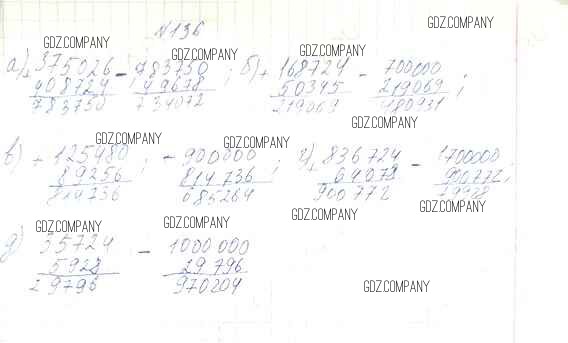 №136
GDZ.COMPANY
GDZ.COMPANY GDZ.COMPANY GDZ.COMPANY
а) + 375026 - 783750 ; б) + 168724 - 700000
408724 49678 50345 219069 ;
783750 734072 219069 480931
GDZ.COMPANY
GDZ.COMPANY GDZ.COMPANY
в) + 725480 ; - 900000 ; г) + 836724 - 1700000
89256 814736 64072 900772 ;
814736 085264 900772 79928
GDZ.COMPANY GDZ.COMPANY GDZ.COMPANY GDZ.COMPANY
д) 35724 - 1000000
5928 29796
29796 970204
GDZ.COMPANY